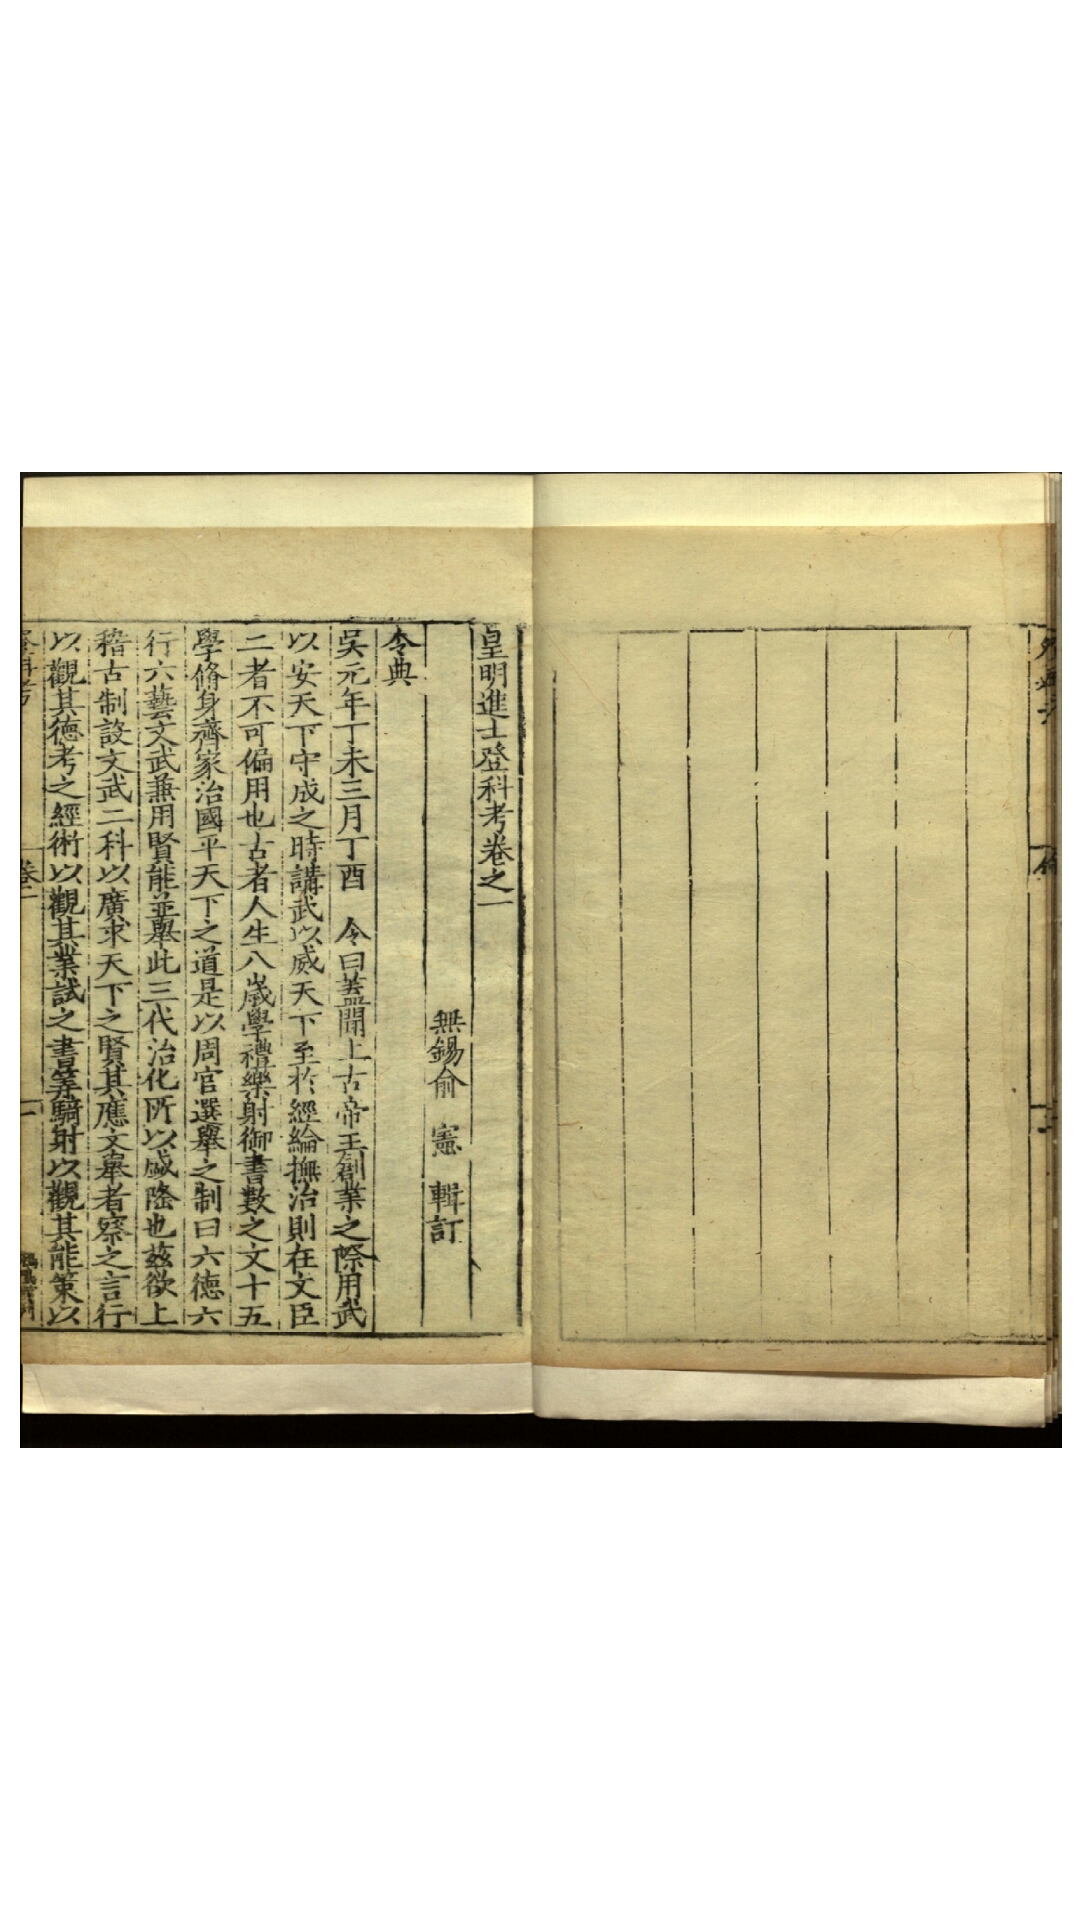 皇明進士登科考卷之一
無錫俞 憲 輯訂
令典
吳元年丁未三月丁酉 令曰蓋聞上古帝王創業之際用武
以安天下守成之時講武以威天下至於經綸撫治則在文臣
二者不可偏用也古者人生八歲學禮樂射御書數之文十五
學脩身齊家治國平天下之道是以周官選舉之制曰六德六
行六藝文武兼用賢能並舉此三代治化所以盛隆也茲欲上
稽古制設文武二科以廣求天下之賢其應文舉者察之言行
以觀其德考之經術以觀其業試之書筭騎射以觀其能策以
登科考 卷一 一